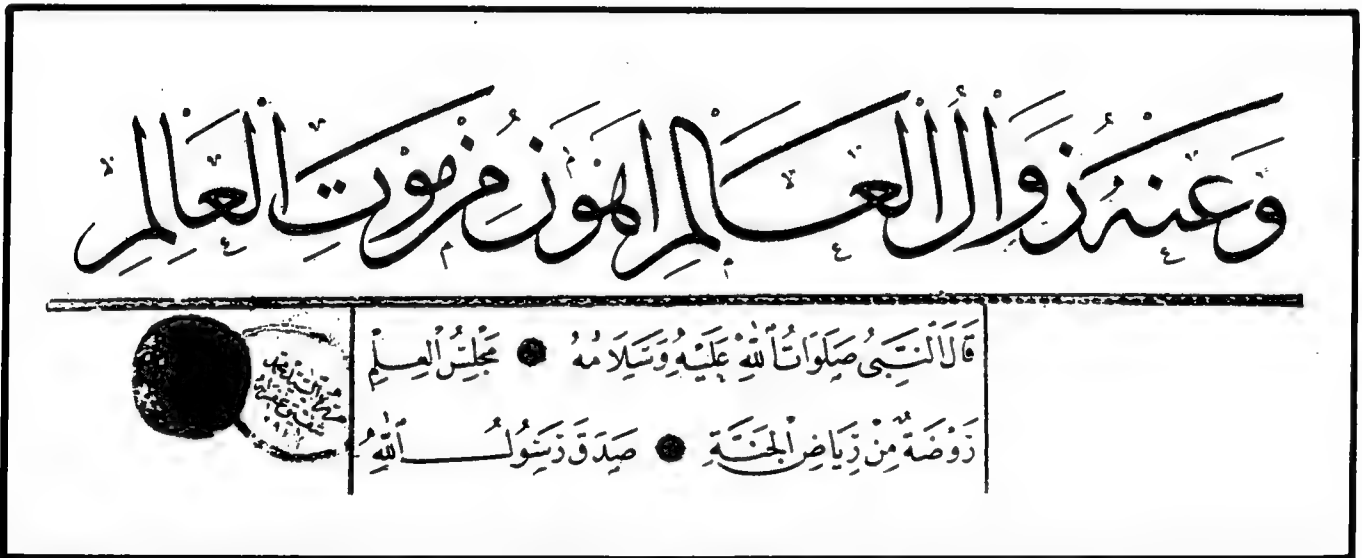 وَعَنْهُ زَوَالُ الْعَالَمِ اَهْوَنُ مِنْ مَوْتِ الْعَالِمِ
قَالَ النَّبِىُّ صَلَوَاتُ اللّٰهِ عَلَيْهِ وَسَلَامُهُ ● مَجْلِسُ الْعِلْمِ
رَوْضَةٌ مِنْ رِيَاضِ الْجَنَّةِ ● صَدَقَ رَسُولُ اللّٰهِ